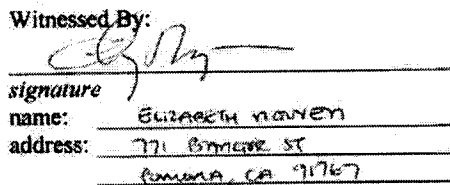 Witnessed By:
signature
name: ELIZABETH NGUYEN
address: 771 BANGOR ST
POMONA, CA 91767